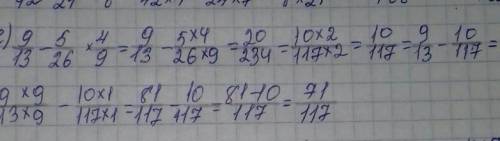 ) 9/13 - 5/26 × 4/9 = 9/13 - 5×4/26×9 = 20/234 = 10×2/117×2 = 10/117 = 9/13 - 10/117 =
9×9/13×9 - 10×1/117×1 = 81/117 - 10/117 = 81-10/117 = 71/117